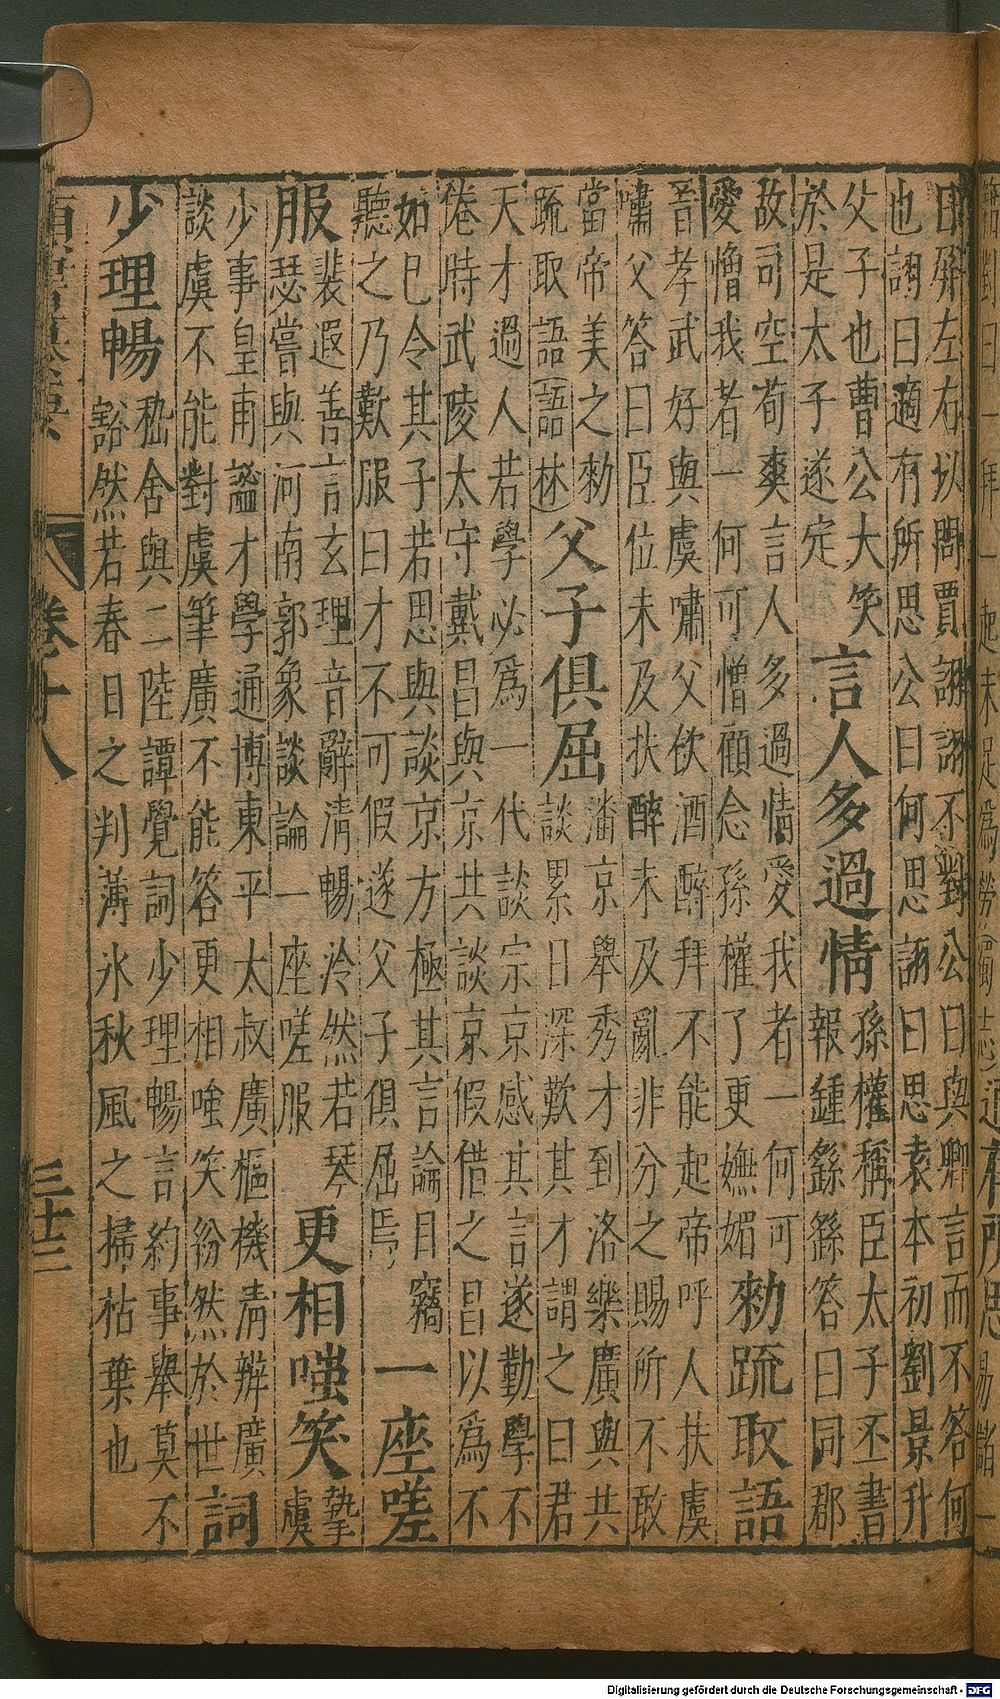 日屏左右以問賈詡詡不對公曰與卿言而不答何
也詡曰適有所思公曰何思詡曰思袁本初劉景升
父子也曹公大笑
於是太子遂定
言人多過情
孫權稱臣太子丕書
報鍾繇繇答曰同郡
故司空荀爽言人多過情愛我者一何可
愛憎我者一何可憎顧念孫權了更嫵媚
勑䟽取語
晉孝武好與虞嘯父飲酒醉拜不能起帝呼人扶虞
嘯父答曰臣位未及扶醉未及亂非分之賜所不敢
當帝美之勑
䟽取語語林
父子俱屈
潘京舉秀才到洛樂廣與共
談累日深歎其才謂之曰君
天才過人若學必爲一代談宗京感其言遂勤學不
倦時武陵太守戴昌與京共談京假借之昌以爲不
如已令其子若思與談京方極其言論昌竊
聽之乃歎服曰才不可假遂父子俱屈焉
一座嗟
服
裴遐善言玄理音辭清暢泠然若琴
瑟嘗與河南郭象談論一座嗟服
更相嗤笑
摯
虞
少事皇甫謐才學通博東平太叔廣樞機清辨廣
談虞不能對虞筆廣不能答更相嗤笑紛然於世
詞
少理暢
嵇含與二陸譚覺詞少理暢言約事舉莫不
豁然若春日之判薄氷秋風之掃枯葉也
卷十八
Digitalisierung gefördert durch die Deutsche Forschungsgemeinschaft - DFG